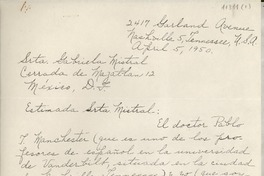 2417 Garland Avenue
Nashville 5, Tennessee, U.S.A.
April 5, 1950.
Srta. Gabriela Mistral
Cerrada de Mazatlán 12
México, D.F.
Estimada Srta. Mistral:
El doctor Pablo
T. Manchester (que es uno de los pro-
fesores de español en la universidad
de Vanderbilt, situada en la ciudad